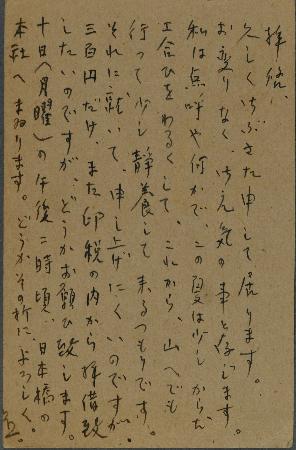 拝啓、
久しく御ぶさた申して居ります。
お変りなく、御元気の事と存じます。
私は点呼や何かで、この夏は少しからだ
工合ひをわるくして、これから、山へでも
行って少し静養して来るつもりです。
それに就いて、申し上げにくいのですが
三百円だけ、また印税の内から拝借致
したいのですが、どうかお願ひ致します。
十日(月曜)の午後二時頃、日本橋の
本社へまゐります。どうかその折に、よろしく。